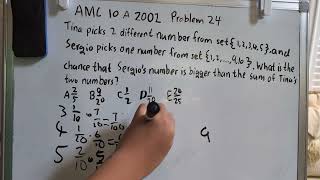 AMC 10 A 2002 Problem 24
Tina picks 2 different number from set {1,2,3,4,5}. and
Sergio picks one number from set {1,2,...,9,10}. What is the
chance that Sergio's number is bigger than the sum of Tina's
two numbers?
A 2/5 B 9/20 C 1/2 D 11/20
3 1/10 · 7/10 = 7/100
4 1/10 · 6/10 =
5 2/10 ·
9